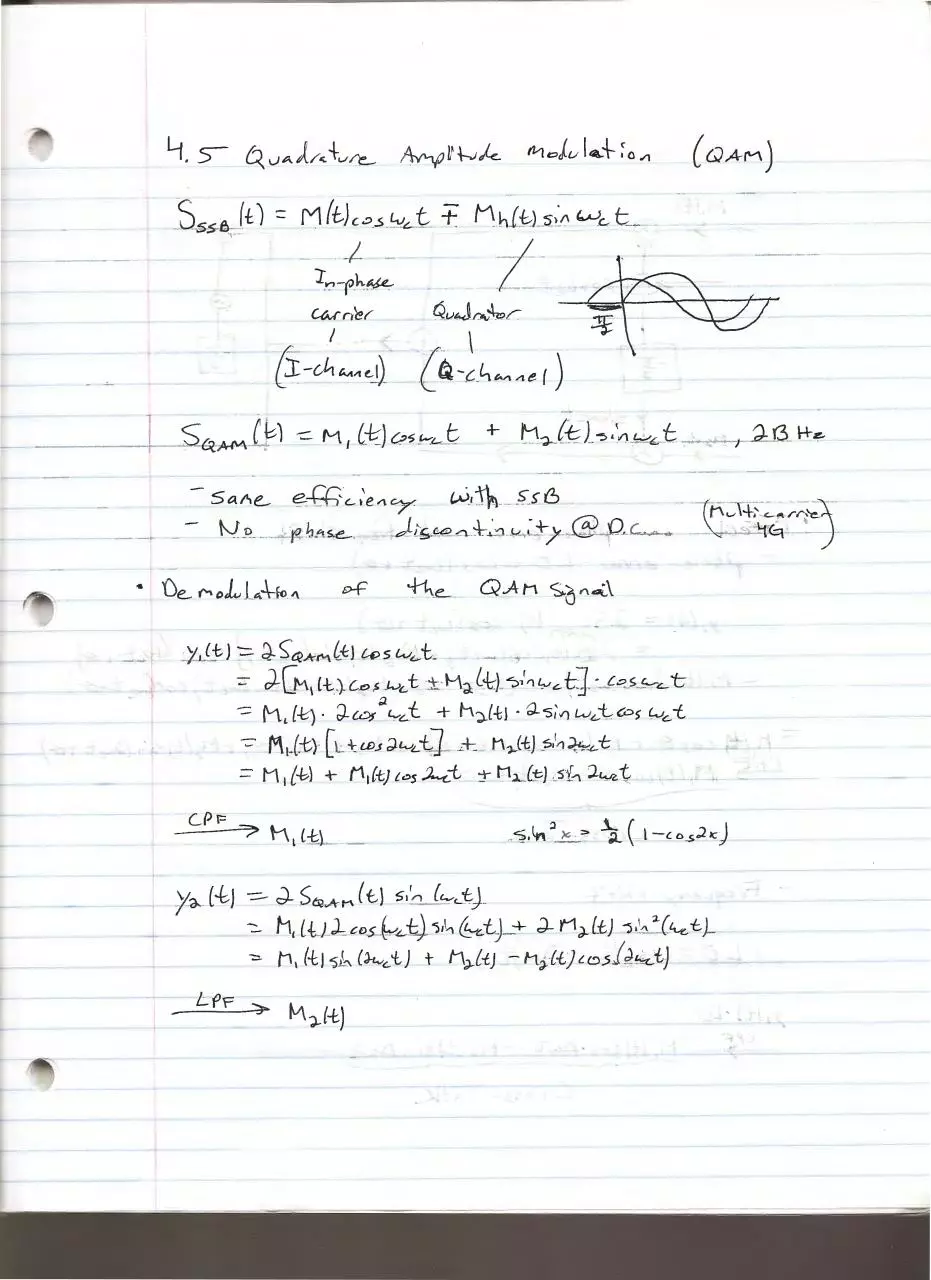 4.5 Quadrature Amplitude Modulation (QAM)
S_SSB(t) = M(t)cosω_ct ∓ M_h(t)sinω_ct
In-phase
carrier Quadrator
π/2
(I-channel) (Q-channel)
S_QAM(t) = M_1(t)cosω_ct + M_2(t)sinω_ct , 2B Hz
- Same efficiency with SSB
- No phase discontinuity @ D.C. (Multicarrier 4G)
• Demodulation of the QAM Signal
y_1(t) = 2S_QAM(t)cosω_ct
= 2[M_1(t)cosω_ct ± M_2(t)sinω_ct]·cosω_ct
= M_1(t)·2cos²ω_ct + M_2(t)·2sinω_ct cosω_ct
= M_1(t)[1+cos2ω_ct] ± M_2(t)sin2ω_ct
= M_1(t) + M_1(t)cos2ω_ct ± M_2(t)sin2ω_ct
LPF → M_1(t) sin²x = 1/2(1-cos2x)
y_2(t) = 2S_QAM(t) sin(ω_ct)
= M_1(t)2cos(ω_ct)sin(ω_ct) + 2M_2(t)sin²(ω_ct)
= M_1(t)sin(2ω_ct) + M_2(t) - M_2(t)cos(2ω_ct)
LPF → M_2(t)